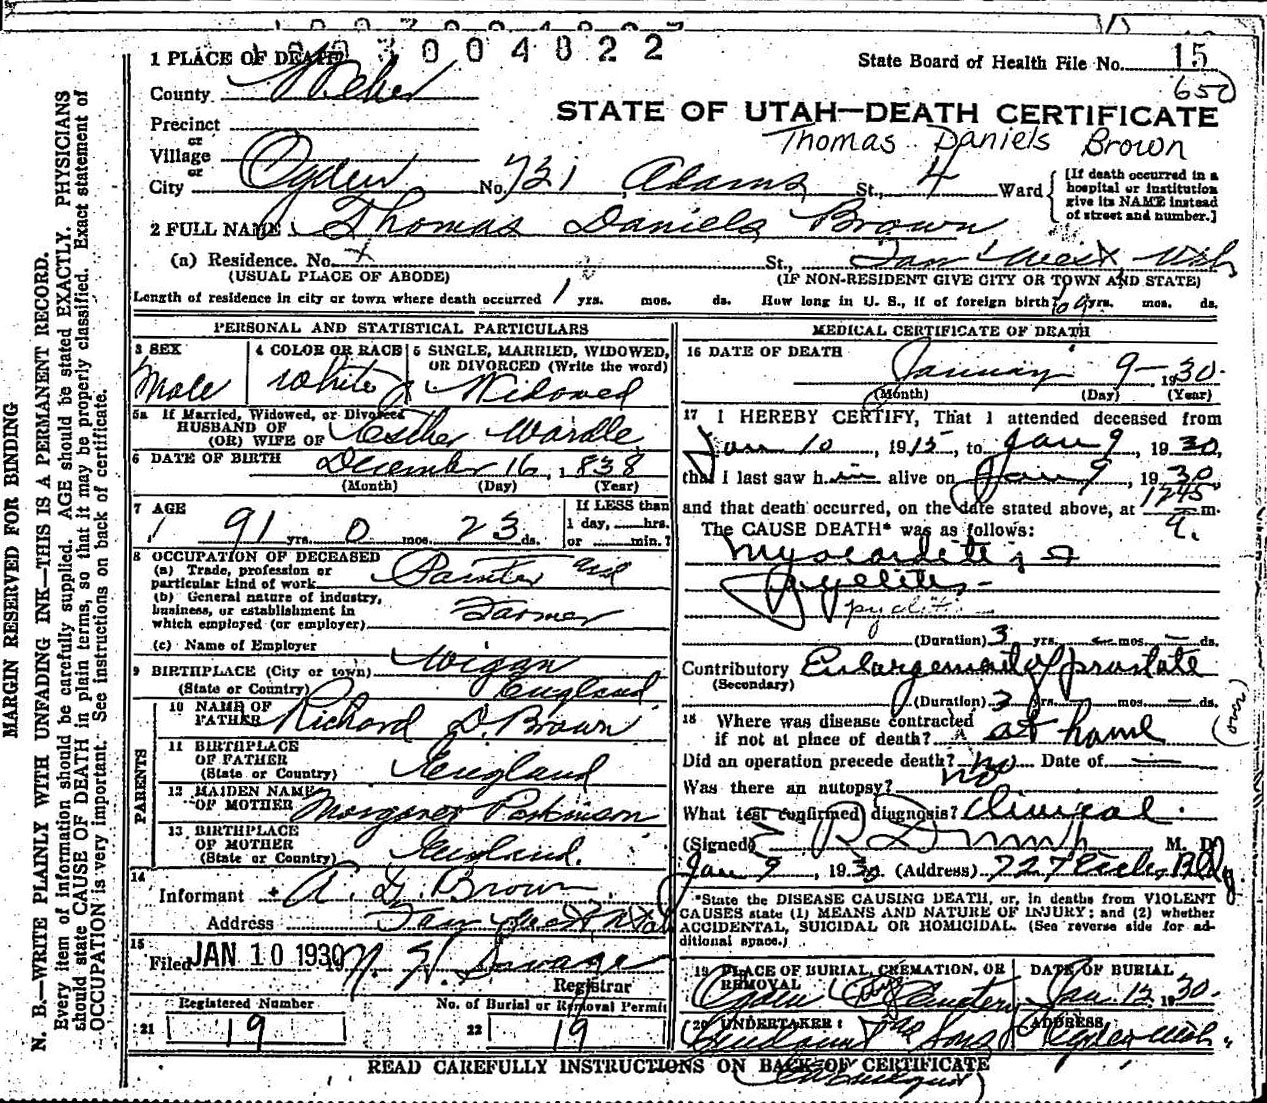 3004022
1 PLACE OF DEATH
State Board of Health File No. 15
650
County Weber
STATE OF UTAH—DEATH CERTIFICATE
Precinct
Thomas Daniels Brown
or
Village
or
City Ogden No. 731 Adams St., 4 Ward
[If death occurred in a
hospital or institution
give its NAME instead
of street and number.]
2 FULL NAME Thomas Daniels Brown
(a) Residence. No. St., Farr West Utah
(USUAL PLACE OF ABODE) (IF NON-RESIDENT GIVE CITY OR TOWN AND STATE)
Length of residence in city or town where death occurred 1 yrs. mos. ds. How long in U. S., if of foreign birth? yrs. mos. ds.
PERSONAL AND STATISTICAL PARTICULARS
3 SEX 4 COLOR OR RACE 5 SINGLE, MARRIED, WIDOWED,
OR DIVORCED (Write the word)
Male White Widowed
5a If Married, Widowed, or Divorced
HUSBAND OF
(OR) WIFE OF Esther Wardle
6 DATE OF BIRTH December 16, 1838
(Month) (Day) (Year)
7 AGE If LESS than
91 yrs. 0 mos. 23 ds. 1 day, hrs.
or min.?
8 OCCUPATION OF DECEASED
(a) Trade, profession or
particular kind of work Painter and
(b) General nature of industry,
business, or establishment in
which employed (or employer) Farmer
(c) Name of Employer
9 BIRTHPLACE (City or town) Wigan
(State or Country) England
PARENTS
10 NAME OF
FATHER Richard D. Brown
11 BIRTHPLACE
OF FATHER
(State or Country) England
12 MAIDEN NAME
OF MOTHER Margaret Parkinson
13 BIRTHPLACE
OF MOTHER
(State or Country) England.
14
Informant A. D. Brown
Address Farr West Utah
15
Filed JAN 10 1930 Savage
Registrar
Registered Number No. of Burial or Removal Permit
21 19 22 19
MEDICAL CERTIFICATE OF DEATH
16 DATE OF DEATH
January 9-1930.
(Month) (Day) (Year)
17 I HEREBY CERTIFY, That I attended deceased from
Jan 10, 1915, to Jan 9, 1930,
that I last saw him alive on Jan 9, 1930,
and that death occurred, on the date stated above, at 1245 a.m.
The CAUSE DEATH* was as follows:
Myocarditis +
Pyelitis-
pyelit
(Duration) 3 yrs. - mos. - ds.
Contributory Enlargement of prostate
(Secondary)
(Duration) 3 yrs. mos. - ds.
18 Where was disease contracted
if not at place of death? at home
Did an operation precede death? no Date of
Was there an autopsy? no
What test confirmed diagnosis? Clinical.
(Signed) M. D.
Jan 9, 1930 (Address) 727 Eccles Bldg
*State the DISEASE CAUSING DEATH, or, in deaths from VIOLENT
CAUSES state (1) MEANS AND NATURE OF INJURY; and (2) whether
ACCIDENTAL, SUICIDAL OR HOMICIDAL. (See reverse side for ad-
ditional space.)
19 PLACE OF BURIAL, CREMATION, OR
REMOVAL DATE OF BURIAL
Ogden City Cemetery Jan. 12, 1930.
20 UNDERTAKER: ADDRESS
Sons Ogden Utah.
READ CAREFULLY INSTRUCTIONS ON BACK OF CERTIFICATE
MARGIN RESERVED FOR BINDING
N. B.—WRITE PLAINLY WITH UNFADING INK—THIS IS A PERMANENT RECORD.
Every item of information should be carefully supplied. AGE should be stated EXACTLY. PHYSICIANS
should state CAUSE OF DEATH in plain terms, so that it may be properly classified. Exact statement of
OCCUPATION is very important. See instructions on back of certificate.